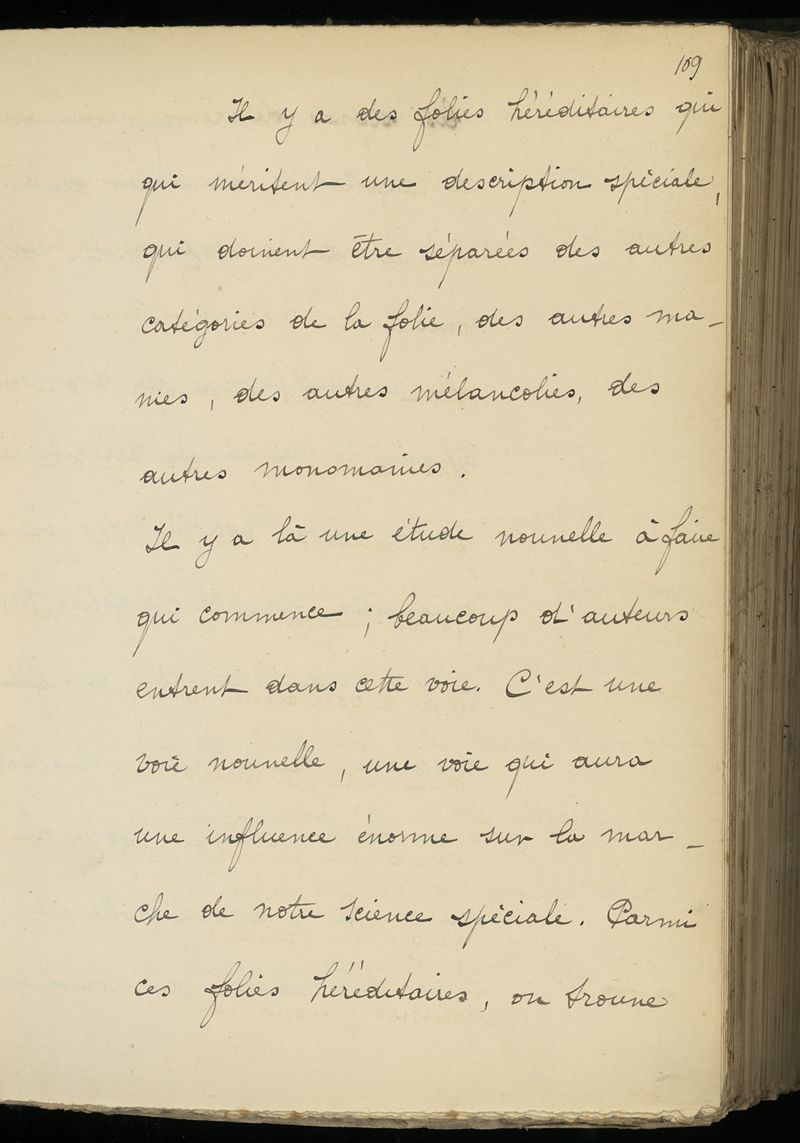 109
Il y a des folies héréditaires qui
qui méritent une description spéciale,
qui doivent être séparées des autres
catégories de la folie, des autres ma-
nies, des autres mélancolies, des
autres monomanies.
Il y a là une étude nouvelle à faire
qui commence ; beaucoup d'auteurs
entrent dans cette voie. C'est une
voie nouvelle, une voie qui aura
une influence énorme sur la mar-
che de notre science spéciale. Parmi
ces folies héréditaires, on trouve